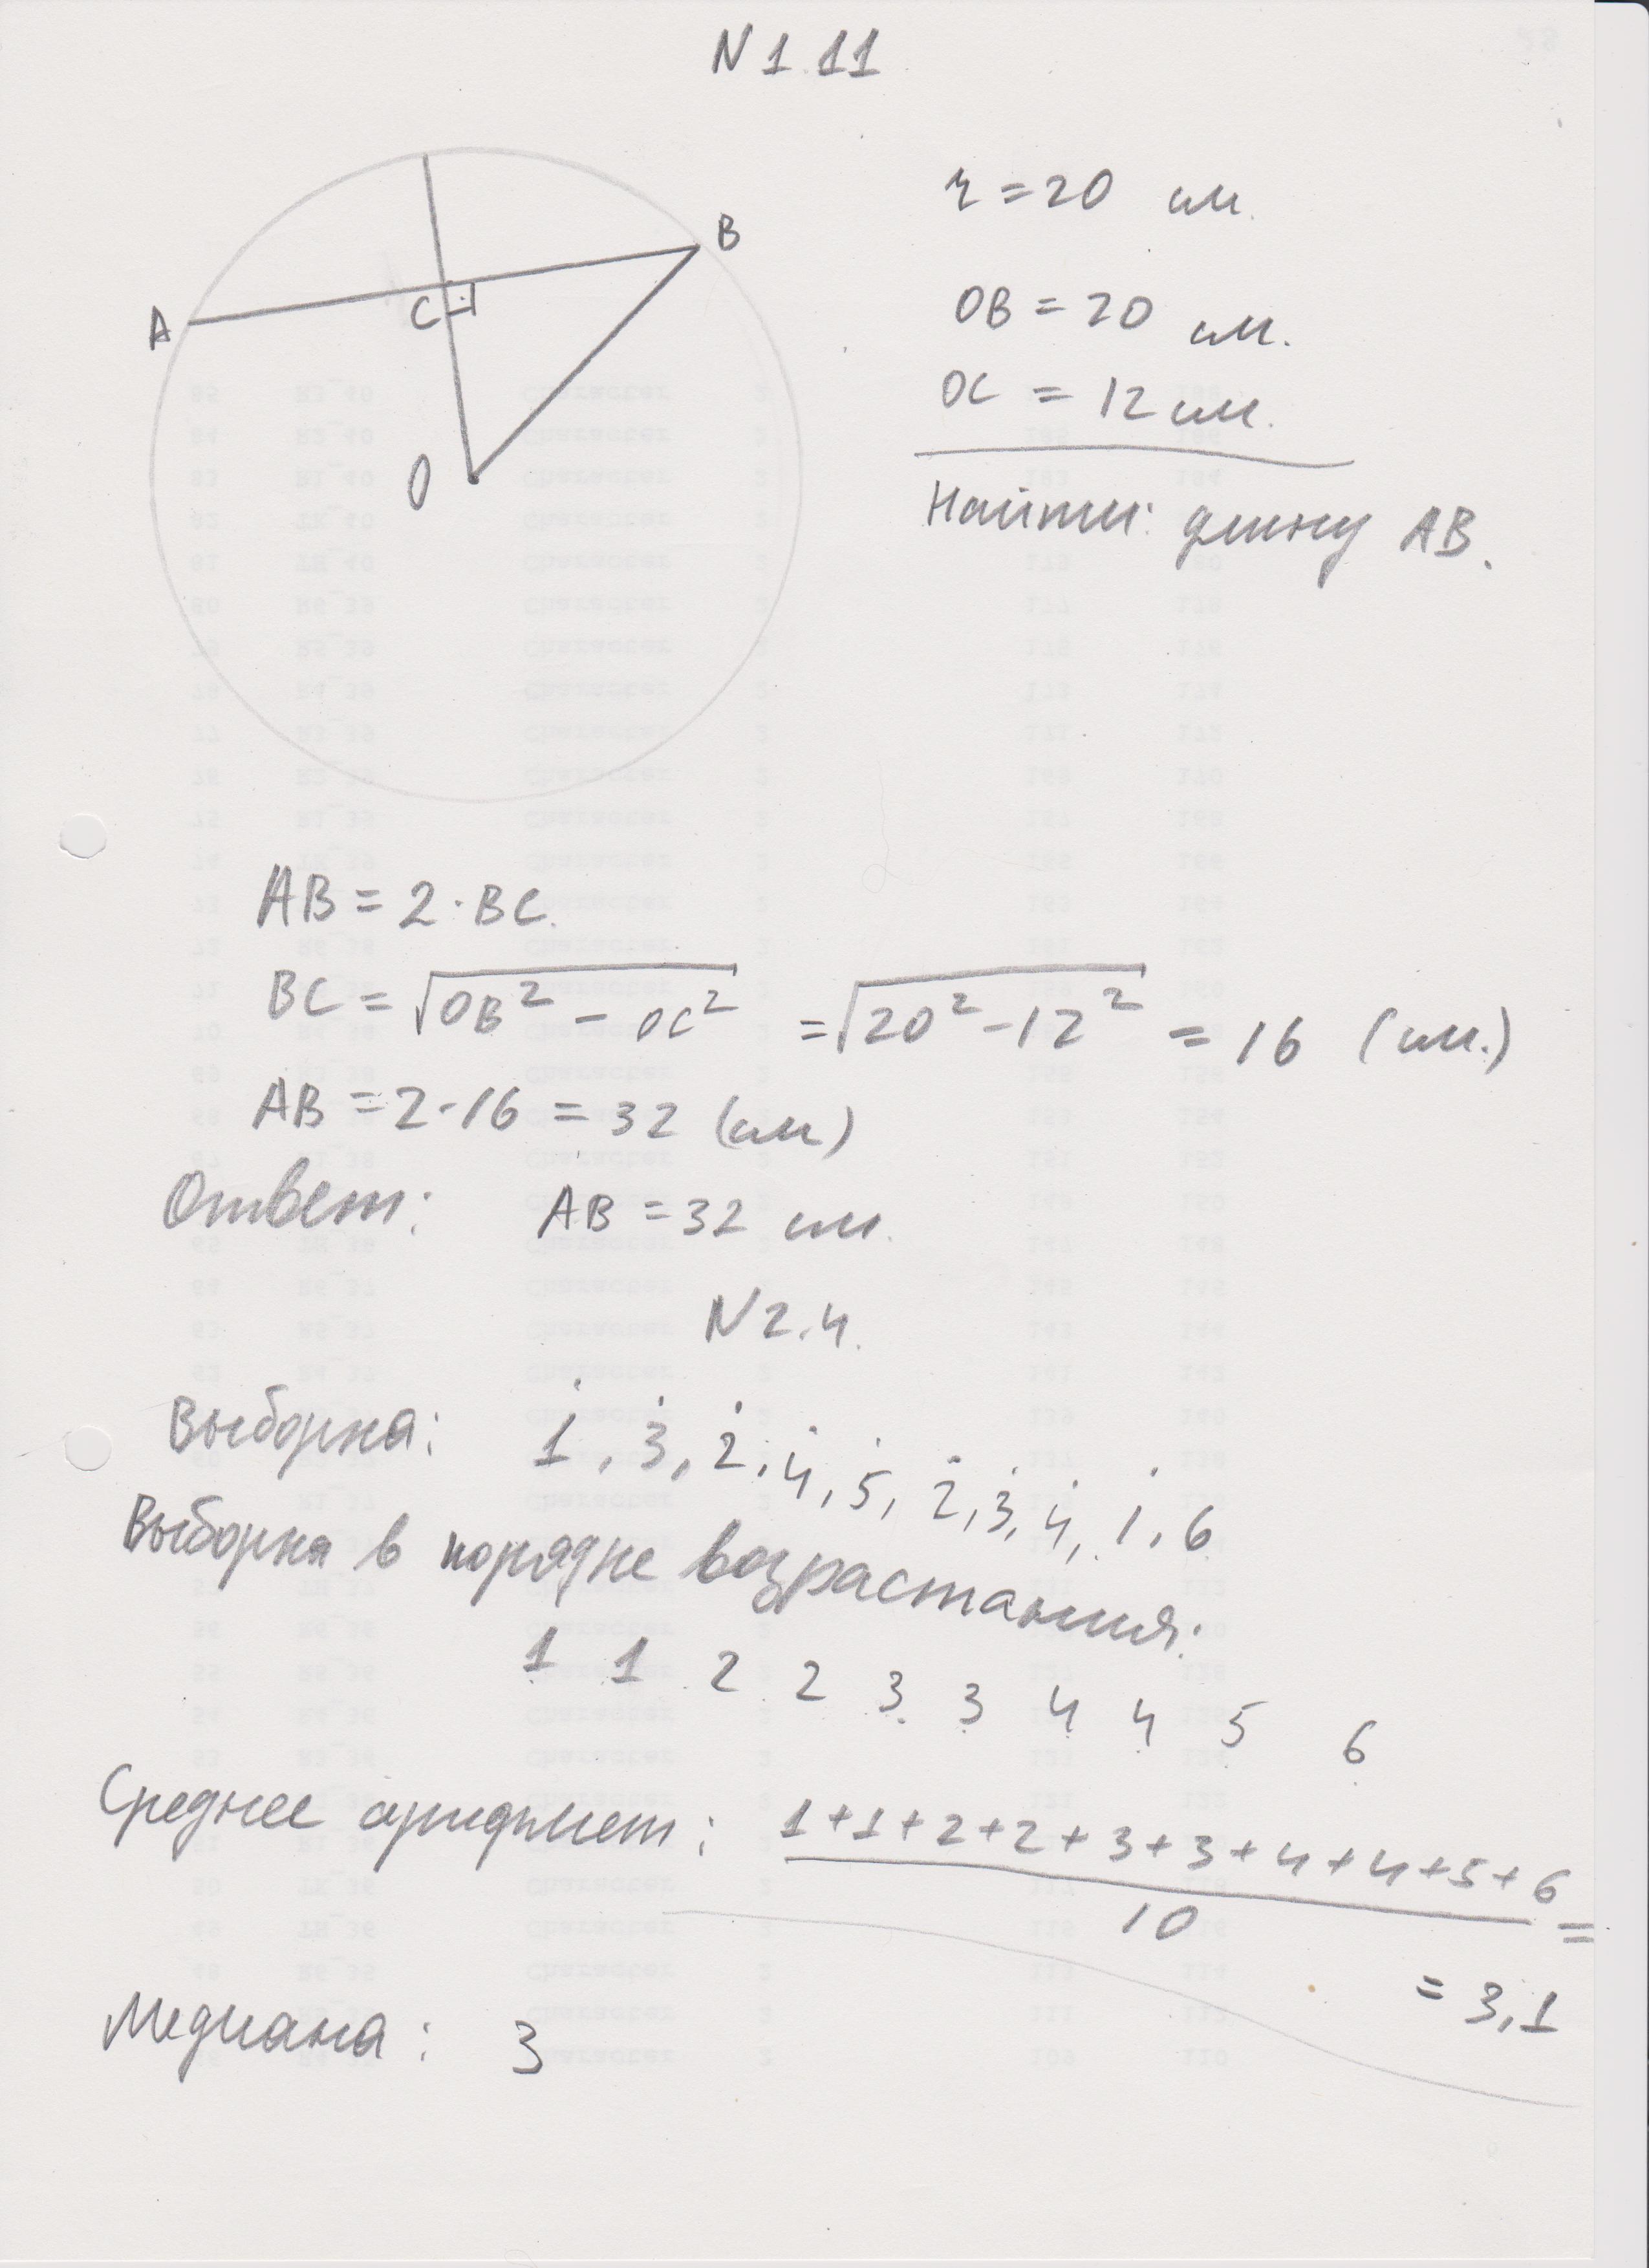 N 1.11
A
B
C
O
r = 20 см.
OB = 20 см.
OC = 12 см.
Найти: длину AB.
AB = 2 · BC.
BC = √(OB² - OC²) = √(20² - 12²) = 16 (см.)
AB = 2 · 16 = 32 (см)
Ответ: AB = 32 см.
N 2.4.
Выборка: 1, 3, 2, 4, 5, 2, 3, 4, 1, 6
Выборка в порядке возрастания:
1 1 2 2 3 3 4 4 5 6
Среднее арифмет: 1+1+2+2+3+3+4+4+5+6
10 =
= 3,1
Медиана: 3